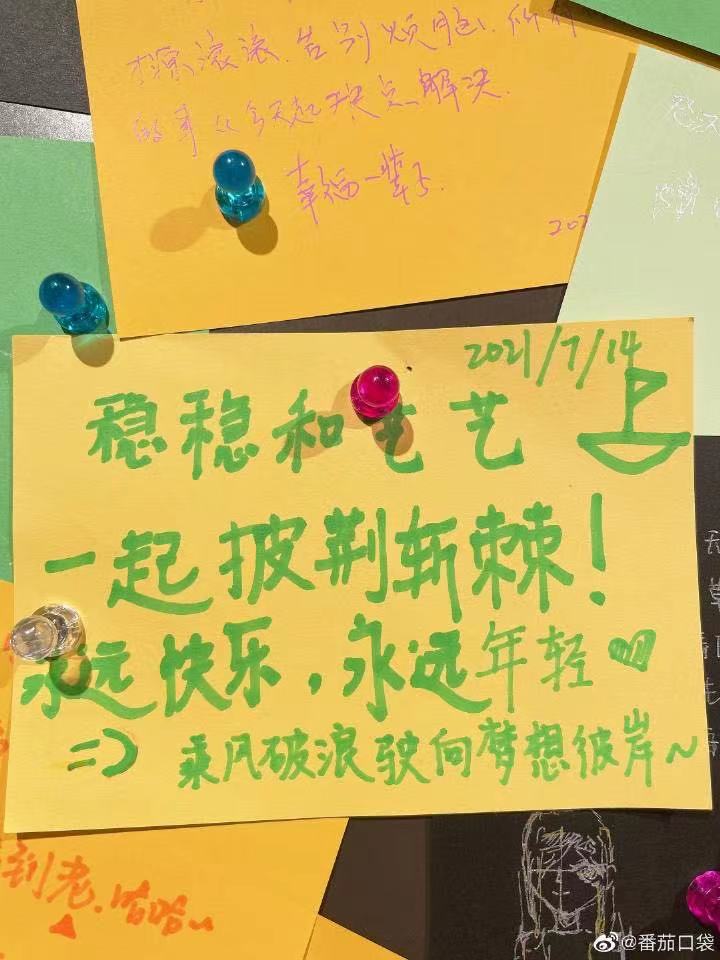 滚滚,告别烦恼、所有
的事从今天起快点解决.
幸福一辈子.
202
2021/7/14
稳稳和艺艺
一起披荆斩棘!
永远快乐,永远年轻
=) 乘风破浪驶向梦想彼岸~
到老.哈哈~
@番茄口袋